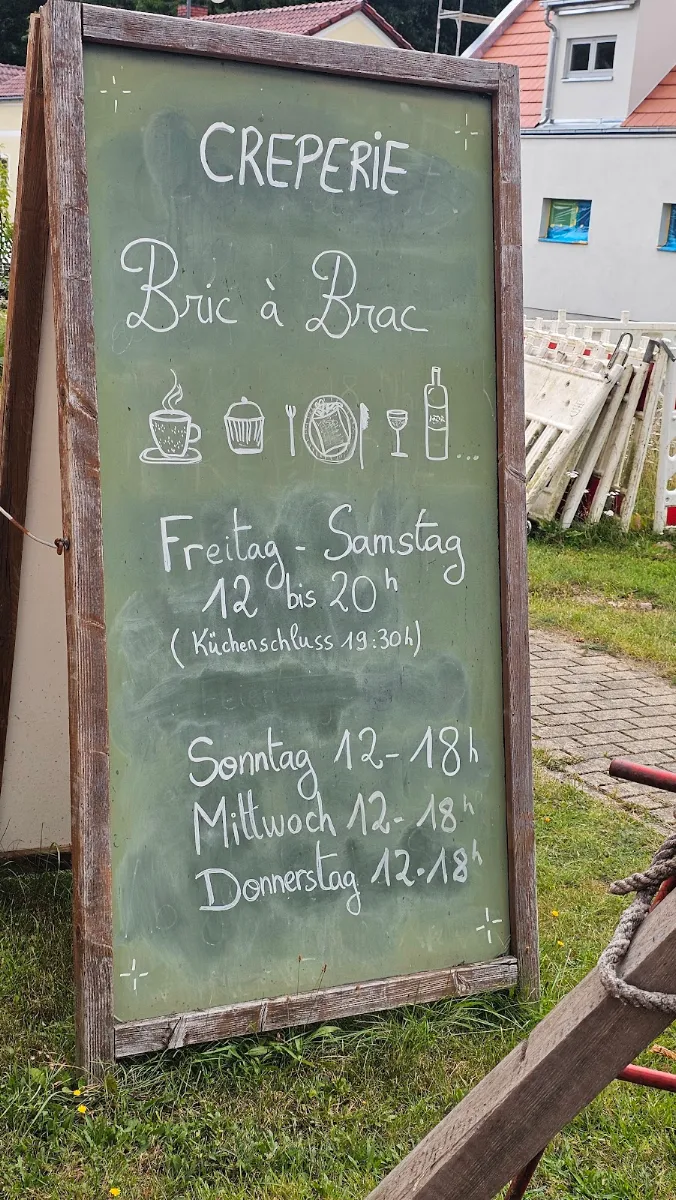 CREPERiE
Bric à Brac
Freitag - Samstag
12 bis 20h
(Küchenschluss 19:30h)
Sonntag 12-18h
Mittwoch 12-18h
Donnerstag 12-18h